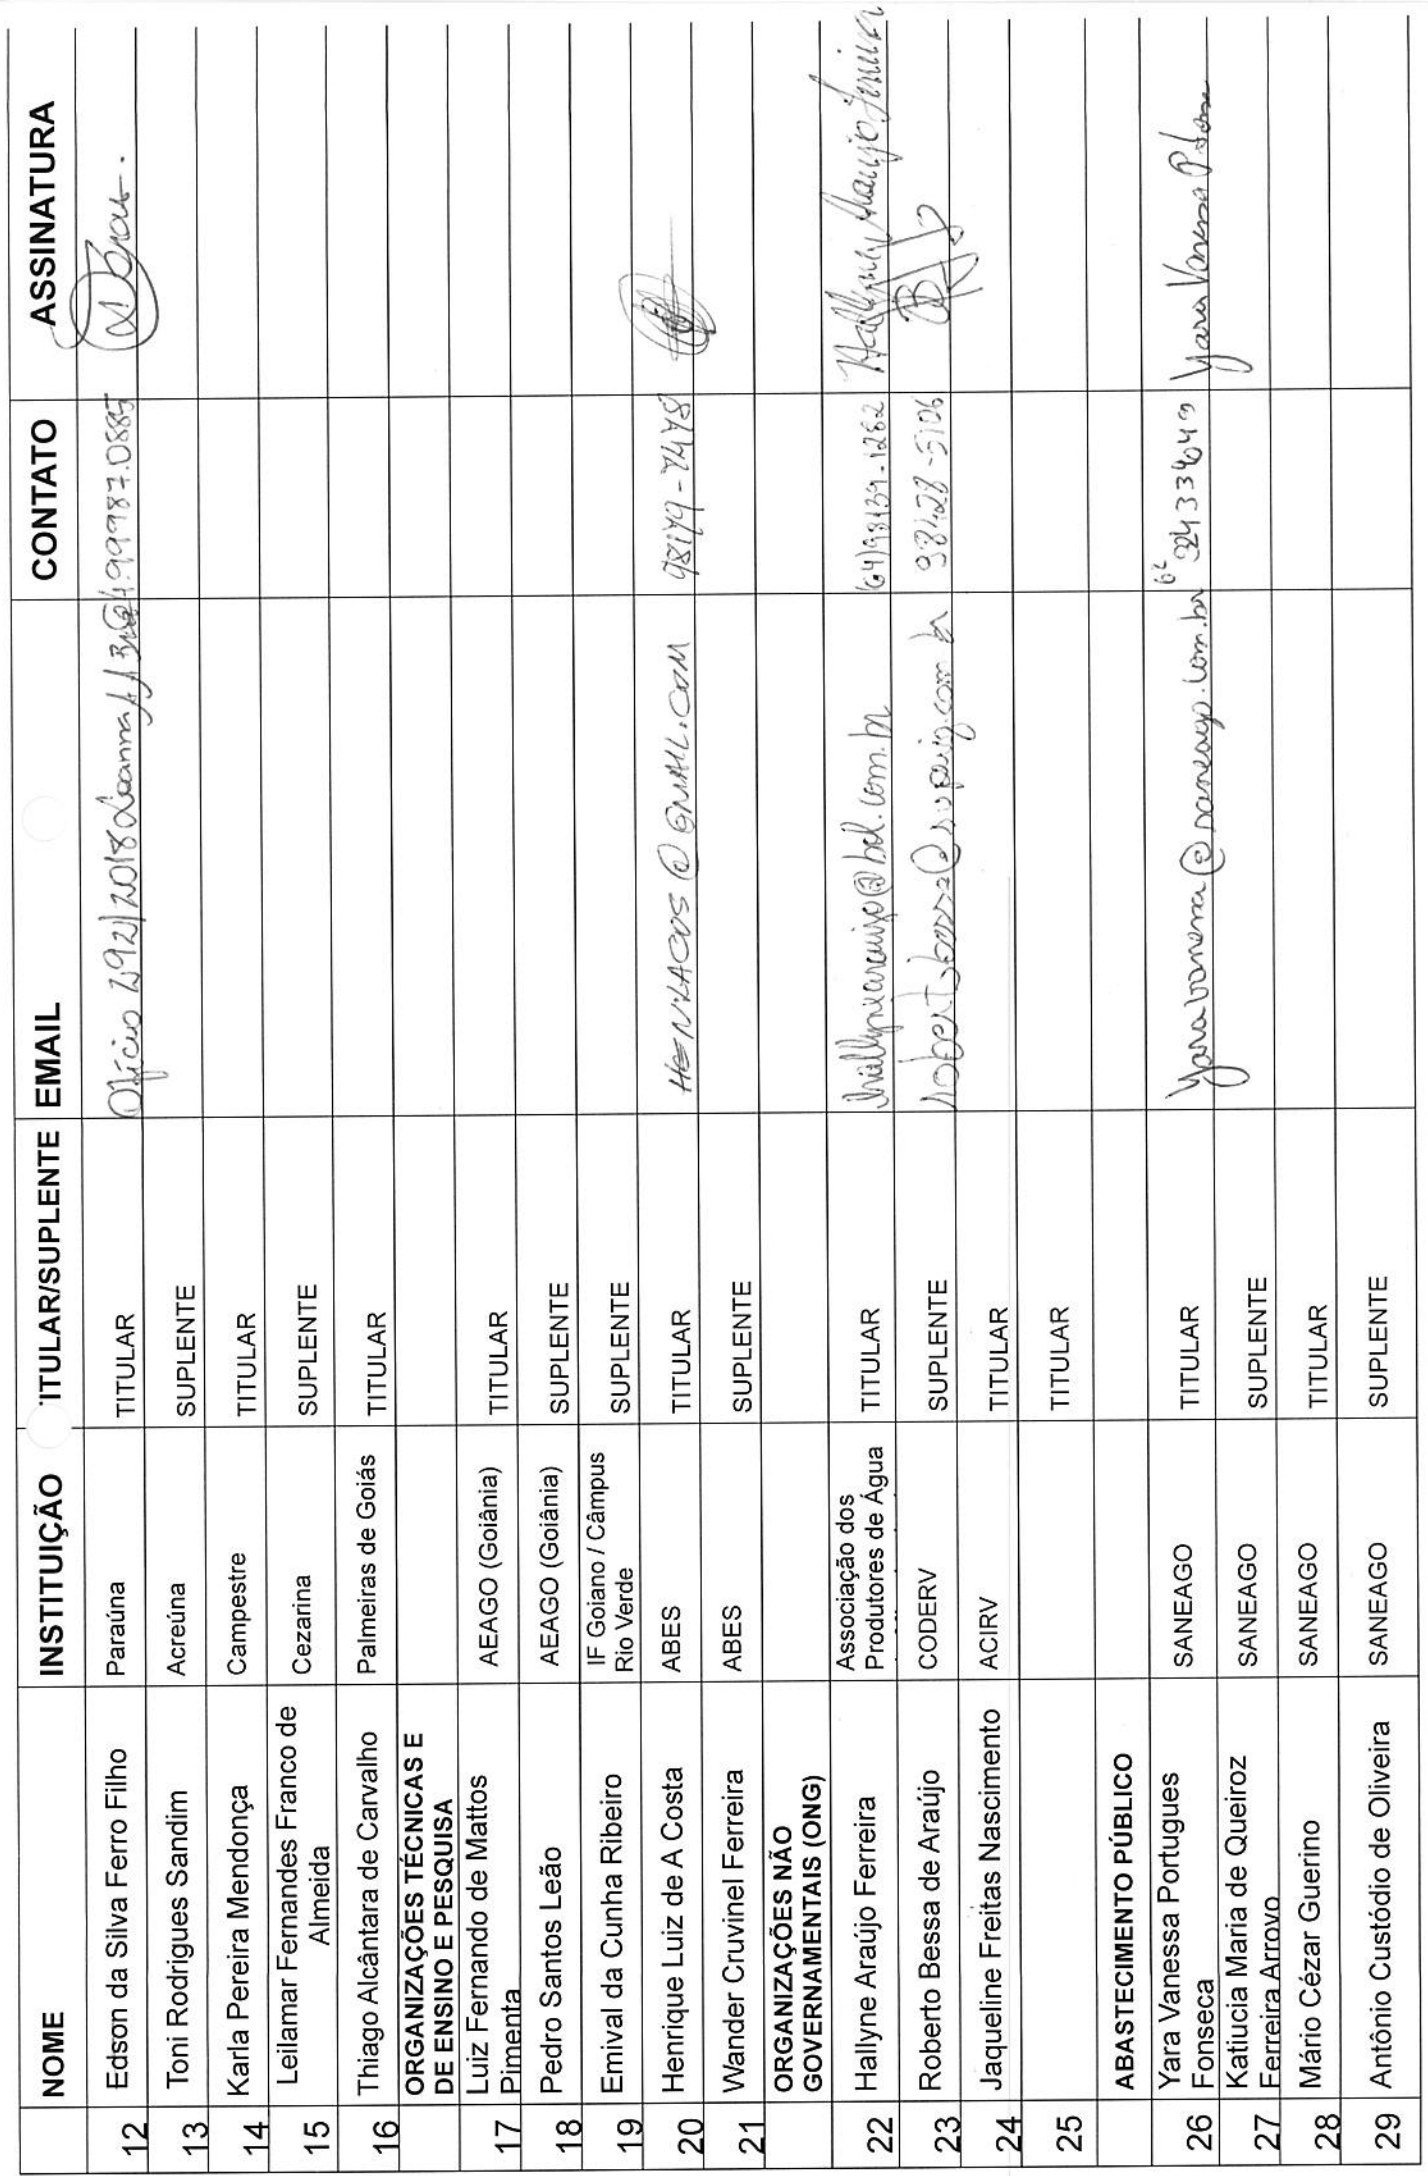 NOME INSTITUIÇÃO TITULAR/SUPLENTE EMAIL CONTATO ASSINATURA
12 Edson da Silva Ferro Filho Paraúna TITULAR Ofício 292/2018 64.99987.0885
13 Toni Rodrigues Sandim Acreúna SUPLENTE
14 Karla Pereira Mendonça Campestre TITULAR
15 Leilamar Fernandes Franco de
Almeida Cezarina SUPLENTE
16 Thiago Alcântara de Carvalho Palmeiras de Goiás TITULAR
ORGANIZAÇÕES TÉCNICAS E
DE ENSINO E PESQUISA
17 Luiz Fernando de Mattos
Pimenta AEAGO (Goiânia) TITULAR
18 Pedro Santos Leão AEAGO (Goiânia) SUPLENTE
19 Emival da Cunha Ribeiro IF Goiano / Câmpus
Rio Verde SUPLENTE
20 Henrique Luiz de A Costa ABES TITULAR HENLACOS@GMAIL.COM 98179-7478
21 Wander Cruvinel Ferreira ABES SUPLENTE
ORGANIZAÇÕES NÃO
GOVERNAMENTAIS (ONG)
22 Hallyne Araújo Ferreira Associação dos
Produtores de Água TITULAR hallynearaujo@bol.com.br (64)98139-1262 Hallyne Araujo Ferreira
23 Roberto Bessa de Araújo CODERV SUPLENTE 98428-5106
24 Jaqueline Freitas Nascimento ACIRV TITULAR
25 TITULAR
ABASTECIMENTO PÚBLICO
26 Yara Vanessa Portugues
Fonseca SANEAGO TITULAR yaravanessa@saneago.com.br 62 Yara Vanessa P. Fonseca
27 Katiucia Maria de Queiroz
Ferreira Arroyo SANEAGO SUPLENTE
28 Mário Cézar Guerino SANEAGO TITULAR
29 Antônio Custódio de Oliveira SANEAGO SUPLENTE